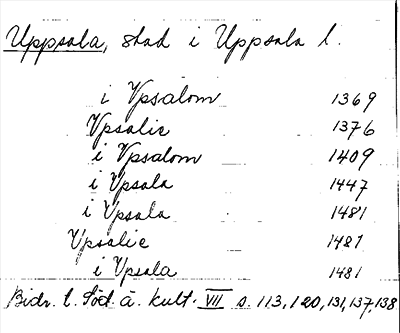 Uppsala, stad i Uppsala l.
i Vpsalom 1369
Vpsalie 1376
i Vpsalom 1409
i Vpsala 1447
i Vpsala 1481
Vpsalie 1481
i Vpsala 1481
Bidr. t. Söd. ä. kult. VIII s. 113, 120, 131, 137, 138